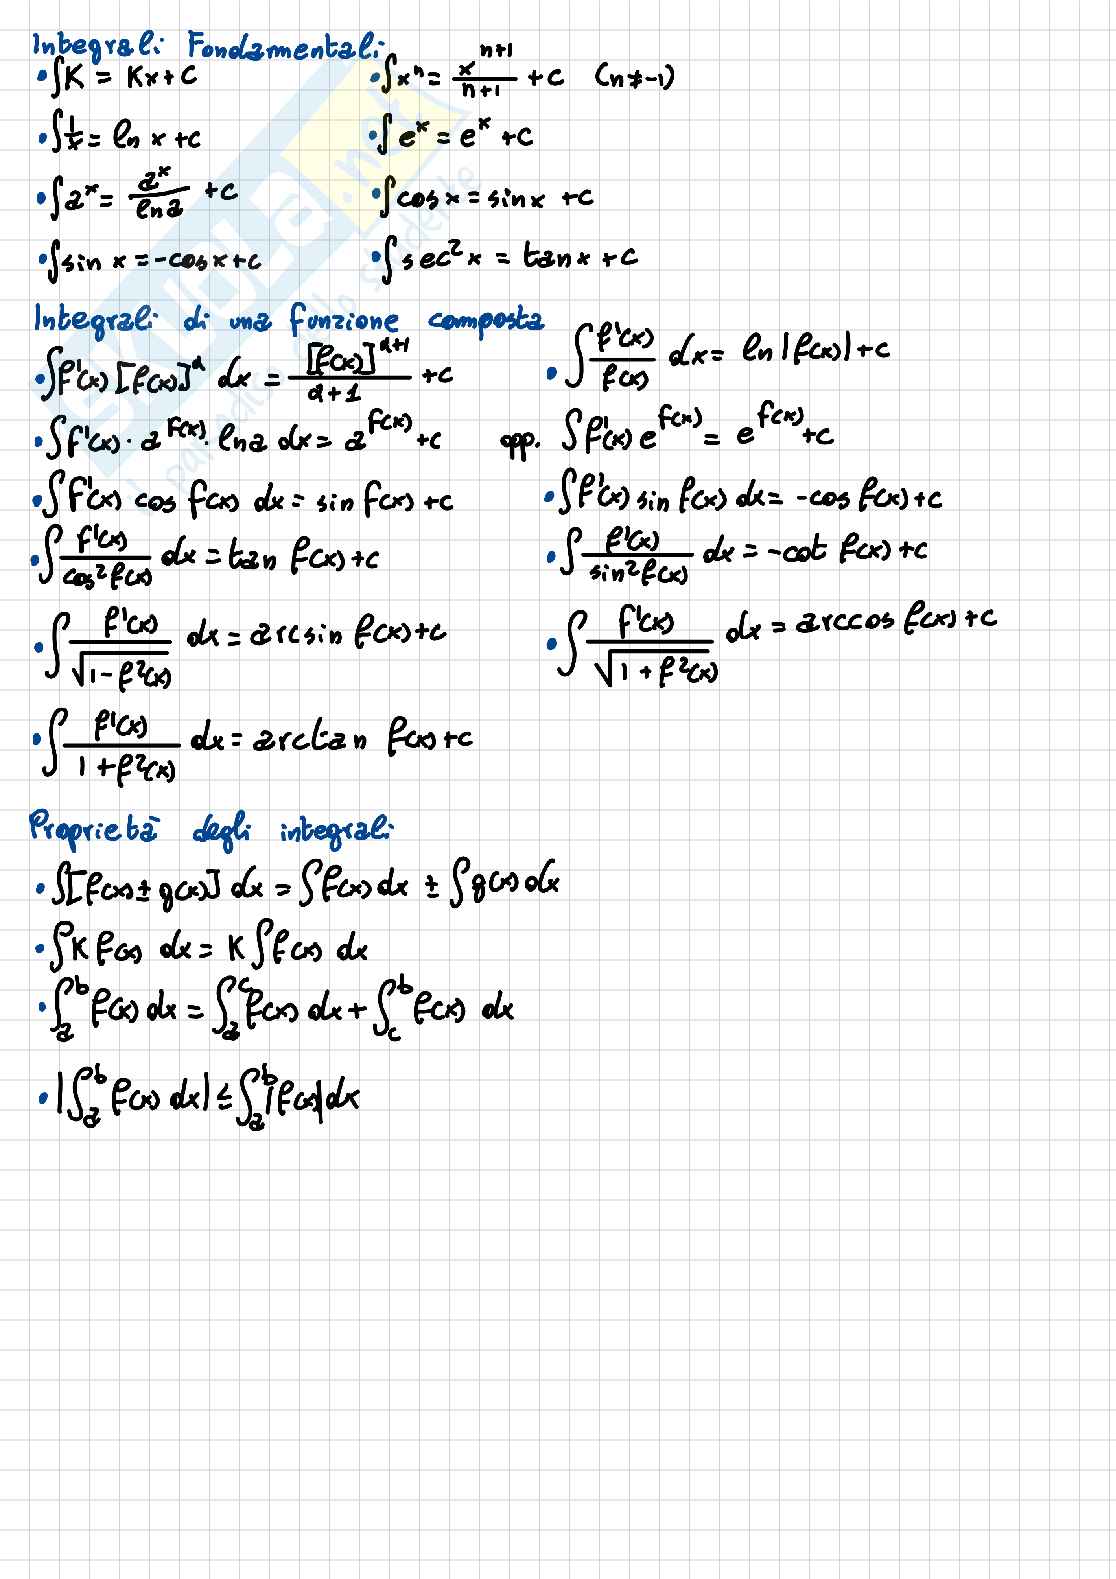 Integrali Fondamentali:
• ∫K = Kx + C • ∫xⁿ = xⁿ⁺¹/(n+1) + C (n≠-1)
• ∫1/x = ln x + C • ∫eˣ = eˣ + C
• ∫aˣ = aˣ/ln a + C • ∫cos x = sin x + C
• ∫sin x = -cos x + C • ∫sec² x = tan x + C
Integrali di una funzione composta
• ∫f'(x) [f(x)]^α dx = [f(x)]^(α+1)/(α+1) + C • ∫f'(x)/f(x) dx = ln |f(x)| + C
• ∫f'(x) · a^f(x) · ln a dx = a^f(x) + C opp. ∫f'(x) e^f(x) = e^f(x) + C
• ∫f'(x) cos f(x) dx = sin f(x) + C • ∫f'(x) sin f(x) dx = -cos f(x) + C
• ∫f'(x)/cos² f(x) dx = tan f(x) + C • ∫f'(x)/sin² f(x) dx = -cot f(x) + C
• ∫f'(x)/√(1-f²(x)) dx = arcsin f(x) + C • ∫f'(x)/√(1+f²(x)) dx = arccos f(x) + C
• ∫f'(x)/(1+f²(x)) dx = arctan f(x) + C
Proprietà degli integrali
• ∫[f(x) ± g(x)] dx = ∫f(x) dx ± ∫g(x) dx
• ∫K f(x) dx = K ∫f(x) dx
• ∫ₐᵇ f(x) dx = ∫ₐᶜ f(x) dx + ∫꜀ᵇ f(x) dx
• |∫ₐᵇ f(x) dx| ≤ ∫ₐᵇ |f(x)| dx
SKUOLA.net